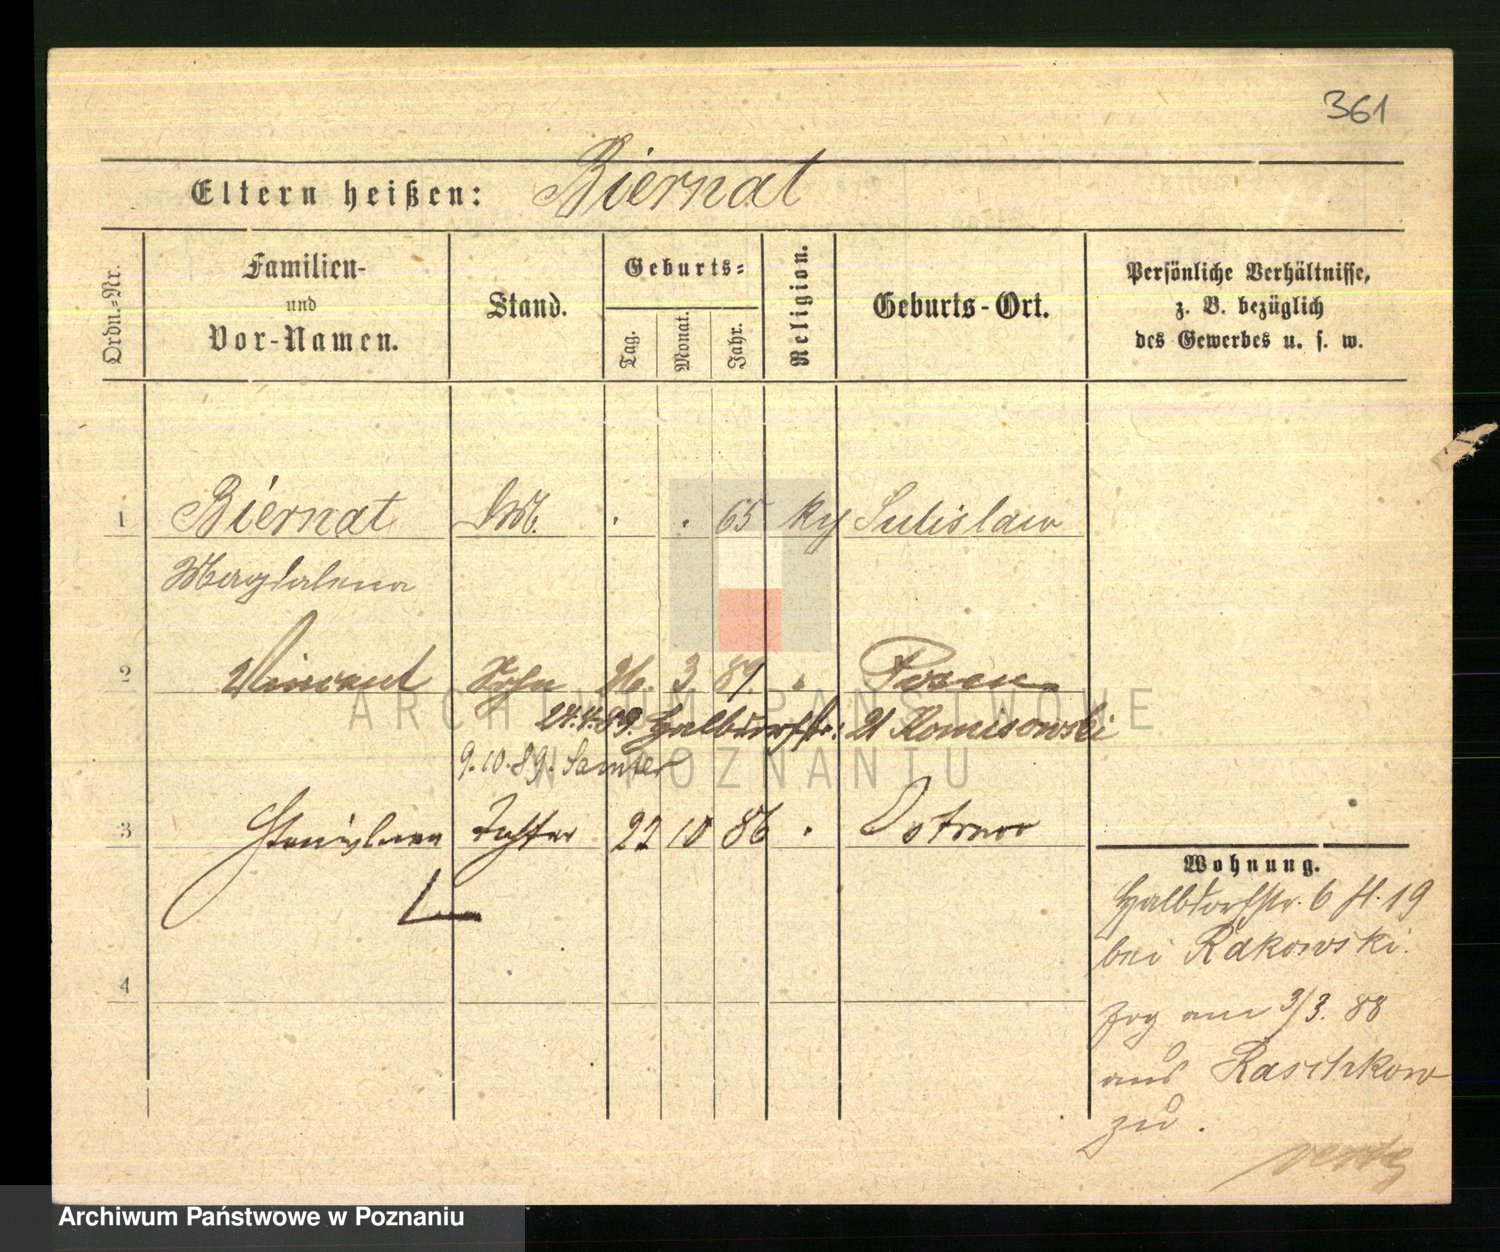 361
Eltern heißen: Biernat
Ordn.-Nr.
Familien-
und
Vor-Namen.
Stand.
Geburts-
Tag.
Monat.
Jahr.
Religion.
Geburts-Ort.
Persönliche Verhältnisse,
z. B. bezüglich
des Gewerbes u. s. w.
1 Biernat . . 65 Sulislaw
Magdalena
2 Vincent Sohn 26. 3 89. " Posen
24.4.89. Halbdorfstr: 21 Komisowski
9.10.89. Samter
3 Stanislawa Tochter 22 10 86 " Ostrowo
4
Wohnung.
Halbdorfstr. 6 H. 19
bei Rakowski.
zog am 3/3. 88
aus Raschkow
zu.
verte
ARCHIWUM PAŃSTWOWE
W POZNANIU
Archiwum Państwowe w Poznaniu